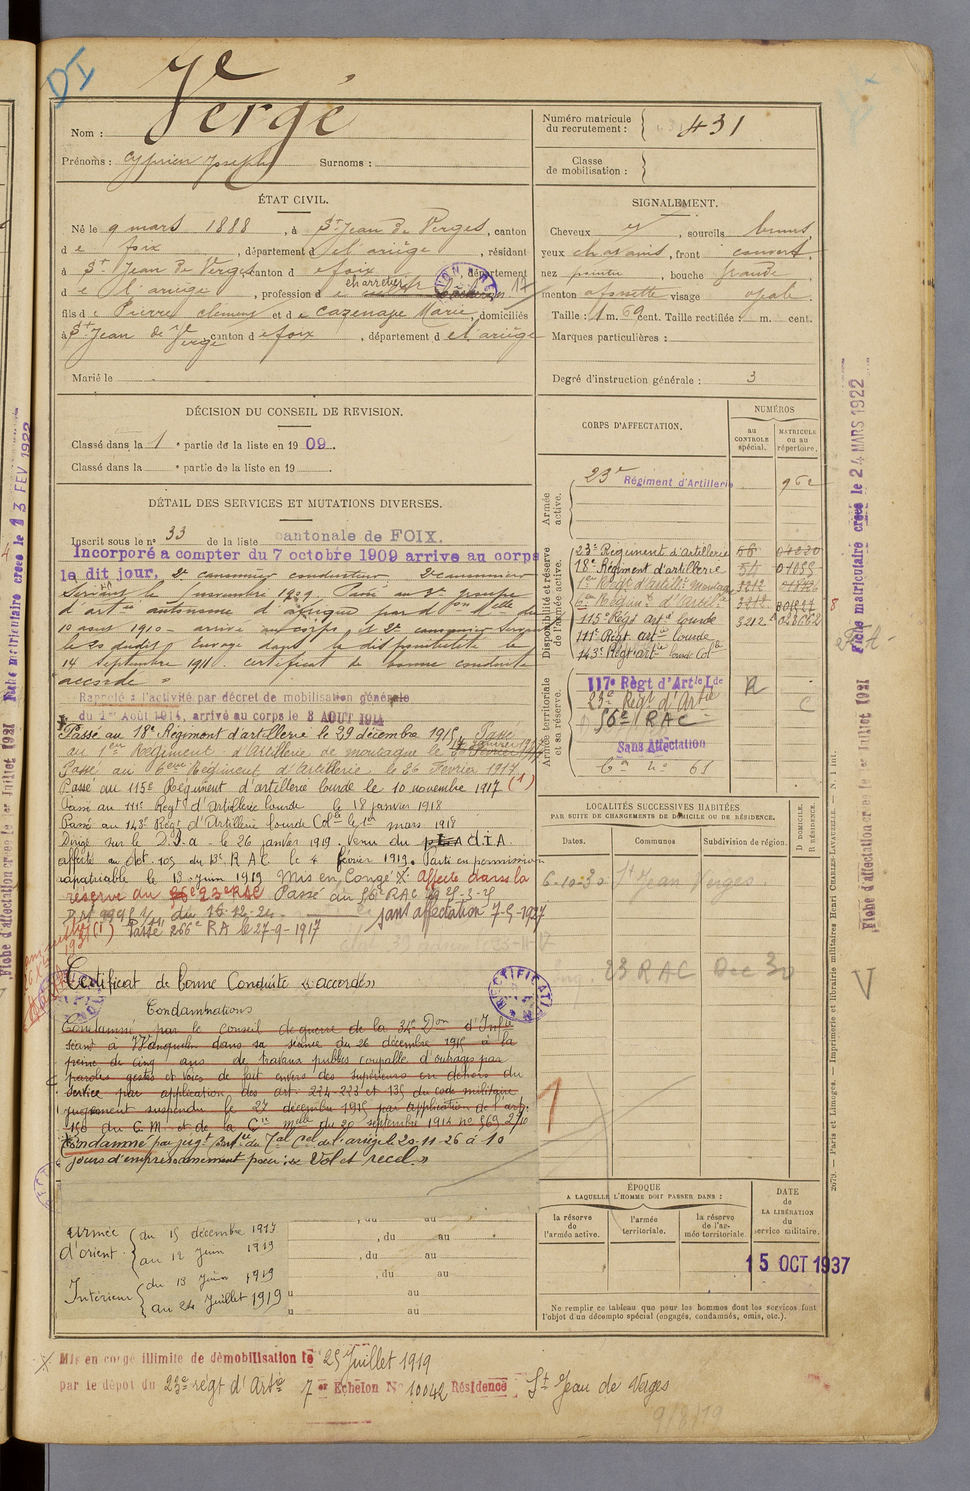 DI
Vergé
Nom :
Prénoms : Cyprien Joseph Surnoms :
Numéro matricule du recrutement : 431
Classe de mobilisation :
ÉTAT CIVIL.
Né le 9 mars 1888, à St Jean de Verges, canton
de foix, département de l'ariège, résidant
à St Jean de Verges canton de foix, département
charretier
de l'ariège, profession de
fils de Pierre clément et de Cazenave Marie, domiciliés
à St Jean de Verges canton de foix, département de l'ariège
Marié le
SIGNALEMENT.
Cheveux et, sourcils bruns
yeux chatains, front couvert,
nez pointu, bouche grande
menton à fossette visage ovale.
Taille : 1 m. 69 cent. Taille rectifiée : m. cent.
Marques particulières :
Degré d'instruction générale : 3
DÉCISION DU CONSEIL DE REVISION.
Classé dans la 1e partie de la liste en 1909.
Classé dans la e partie de la liste en 19
DÉTAIL DES SERVICES ET MUTATIONS DIVERSES.
Inscrit sous le n° 33 de la liste cantonale de FOIX.
Incorporé a compter du 7 octobre 1909 arrive au corps
le dit jour. 2e canonnier conducteur
novembre 1909. Passé au 3e groupe
d'artie autonome d'afrique par don Mlle du
10 aout 1910 - arrivé au corps
le 20 dudit, Envoyé dans la disponibilité le
14 Septembre 1911. certificat de bonne conduite
accordé »
Rappelé à l'activité par décret de mobilisation générale
du 1er Août 1914, arrivé au corps le 3 AOUT 1914
Passé au 18e Régiment d'artillerie le 29 décembre 1915. Passé
au 1er Régiment d'Artillerie de montagne le
Passé au 6eme Régiment d'Artillerie le 26 Février 1917
Passé au 115e Régiment d'artillerie lourde le 10 novembre 1917 (1)
Passé au 111e Régt d'Artillerie lourde le 18 janvier 1918
Passé au 143e Régt d'Artillerie lourde Colle le 1er mars 1918
Dirigé sur le D.I.a. le 26 janvier 1919. Venu du D.I.A
affecté au dét. 105 du 13e R A C le 4 février 1919. Parti en permission
rapatriable le 13 Juin 1919 Mis en Congé X. Affecté dans la
réserve du 23e RAC Passé au 56e RAC le 25-3-25
sans affectation 7-5-1927
(1) Passé 266e RA le 27-9-1917
Certificat de bonne Conduite « accordé »
Condamnations
Condamné par le conseil de guerre de la 34e Don d'Infie
séant à Wanquetin dans sa séance du 26 décembre 1915 à la
peine de cinq ans de travaux publics coupable d'outrages par
paroles gestes et voies de fait envers des supérieurs en dehors du
service par application des art. 224-223 et 135 du code militaire
jugement suspendu le 27 décembre 1915 par application de l'art.
150 du C. M. et de la Cie melle du 20 septembre 1914 n° 569 2/10
Condamné par jugt du Tal Cel de l'ariège le 20-11-26 à 10
jours d'emprisonnement pour : « Vol et recel. »
armée d'orient
au 15 décembre 1917
au 12 juin 1919
Intérieur
du 13 Juin 1919
au 24 Juillet 1919
, du au
, du au
, du au
au
au
CORPS D'AFFECTATION.
NUMÉROS
au CONTROLE spécial.
MATRICULE ou au répertoire.
Armée active.
23e Régiment d'Artillerie 962
Disponibilité et réserve de l'armée active.
23e Régiment d'Artillerie 56
18e Régiment d'artillerie 54
1er Régt d'Artilie Montagne 3212
6e Régimt d'Artillie 3212
115e Régt artie lourde 3212
111e Régt artie lourde
143e Régt artie lourde Colle
Armée territoriale et sa réserve.
117e Régt d'Artie Lde R
23e Régt d'Artie C
56e RAC
Sans Affectation
LOCALITÉS SUCCESSIVES HABITÉES
PAR SUITE DE CHANGEMENTS DE DOMICILE OU DE RÉSIDENCE.
Dates. Communes Subdivision de région.
D. DOMICILE. R. RÉSIDENCE.
6-10-30 St Jean Verges.
23 RAC Dec 30
ÉPOQUE
A LAQUELLE L'HOMME DOIT PASSER DANS :
la réserve de l'armée active.
l'armée territoriale.
la réserve de l'armée territoriale.
DATE de LA LIBÉRATION du service militaire.
15 OCT 1937
Ne remplir ce tableau que pour les hommes dont les services font
l'objet d'un décompte spécial (engagés, condamnés, omis, etc.).
X Mis en congé illimité de démobilisation le 25 Juillet 1919
par le dépôt du 23e régt d'Artie 7er Echelon N° 10042 Résidence St Jean de Verges
9/8/19
Fiche matriculaire créée le 24 MARS 1922
Fiche d'affectation créée le 1er Juillet 1921
V
2679. — Paris et Limoges. — Imprimerie et librairie militaires Henri CHARLES-LAVAUZELLE. — N. 1 int.
Fiche matriculaire créée le 13 FEV 1922
Fiche d'affectation créée le 1er Juillet 1921
RECTIFICATION